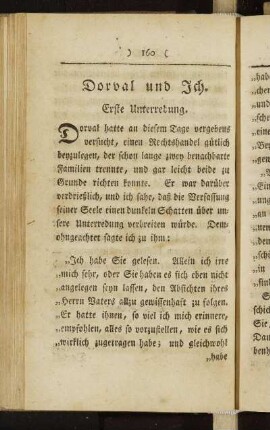 ) 160 (
Dorval und Ich.
Erste Unterredung.
Dorval hatte an diesem Tage vergebens
versucht, einen Rechtshandel gütlich
beyzulegen, der schon lange zwey benachbarte
Familien trennte, und gar leicht beide zu
Grunde richten konnte. Er war darüber
verdrießlich, und ich sahe, daß die Verfassung
seiner Seele einen dunkeln Schatten über un-
sere Unterredung verbreiten würde. Dem-
ohngeachtet sagte ich zu ihm:
„Ich habe Sie gelesen. Allein ich irre
„mich sehr, oder Sie haben es sich eben nicht
„angelegen seyn lassen, den Absichten ihres
„Herrn Vaters allzu gewissenhaft zu folgen.
„Er hatte ihnen, so viel ich mich erinnere,
„empfohlen, alles so vorzustellen, wie es sich
„wirklich zugetragen habe; und gleichwohl
„habe